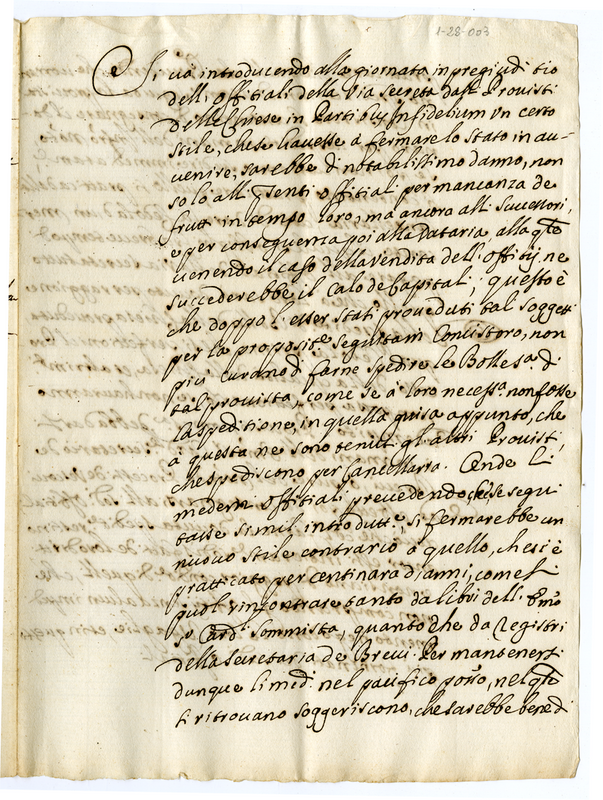 1-28-003
Si và introducendo alla giornata in pregiuditio
delli Offitiali della Via Secreta dalli Provisti
delle Chiese in Partibus Infidelium un certo
stile, che se havesse à fermare lo stato in av-
venire, sarebbe di notabilissimo danno, non
solo alli pnti Offitiali per mancanza de
frutti in tempo loro, ma ancora alli Successori,
e per conseguenza poi alla Dataria alla qle
venendo il caso della vendita dell'offitij, ne
succederebbe il calo de Capitali; questo è
che doppo l'esser stati proveduti tal soggetti
per la propositne seguita in Concistoro, non
più curano di farne spedire le Bolle sa. di
tal provista, come se à loro necessa. non fosse
la speditione, in quella guisa appunto, che
à questa ne sono tenuti gl'altri Provisti,
che spediscono per Cancellaria. Onde li
medemi Offitiali prevedendo, che se segui
tasse simil introdutte, si fermarebbe un
nuovo stile contrario à quello, che si è
pratticato per centinara d'anni, come si
può rincontrare tanto da libri dell' Emo
Sr. Card. Sommista, quanto che da Registri
della Secretaria de Brevi. Per mantenersi
dunque li med. nel pacifico posso, nel qle
si ritrovano soggeriscono, che sarebbe bene di